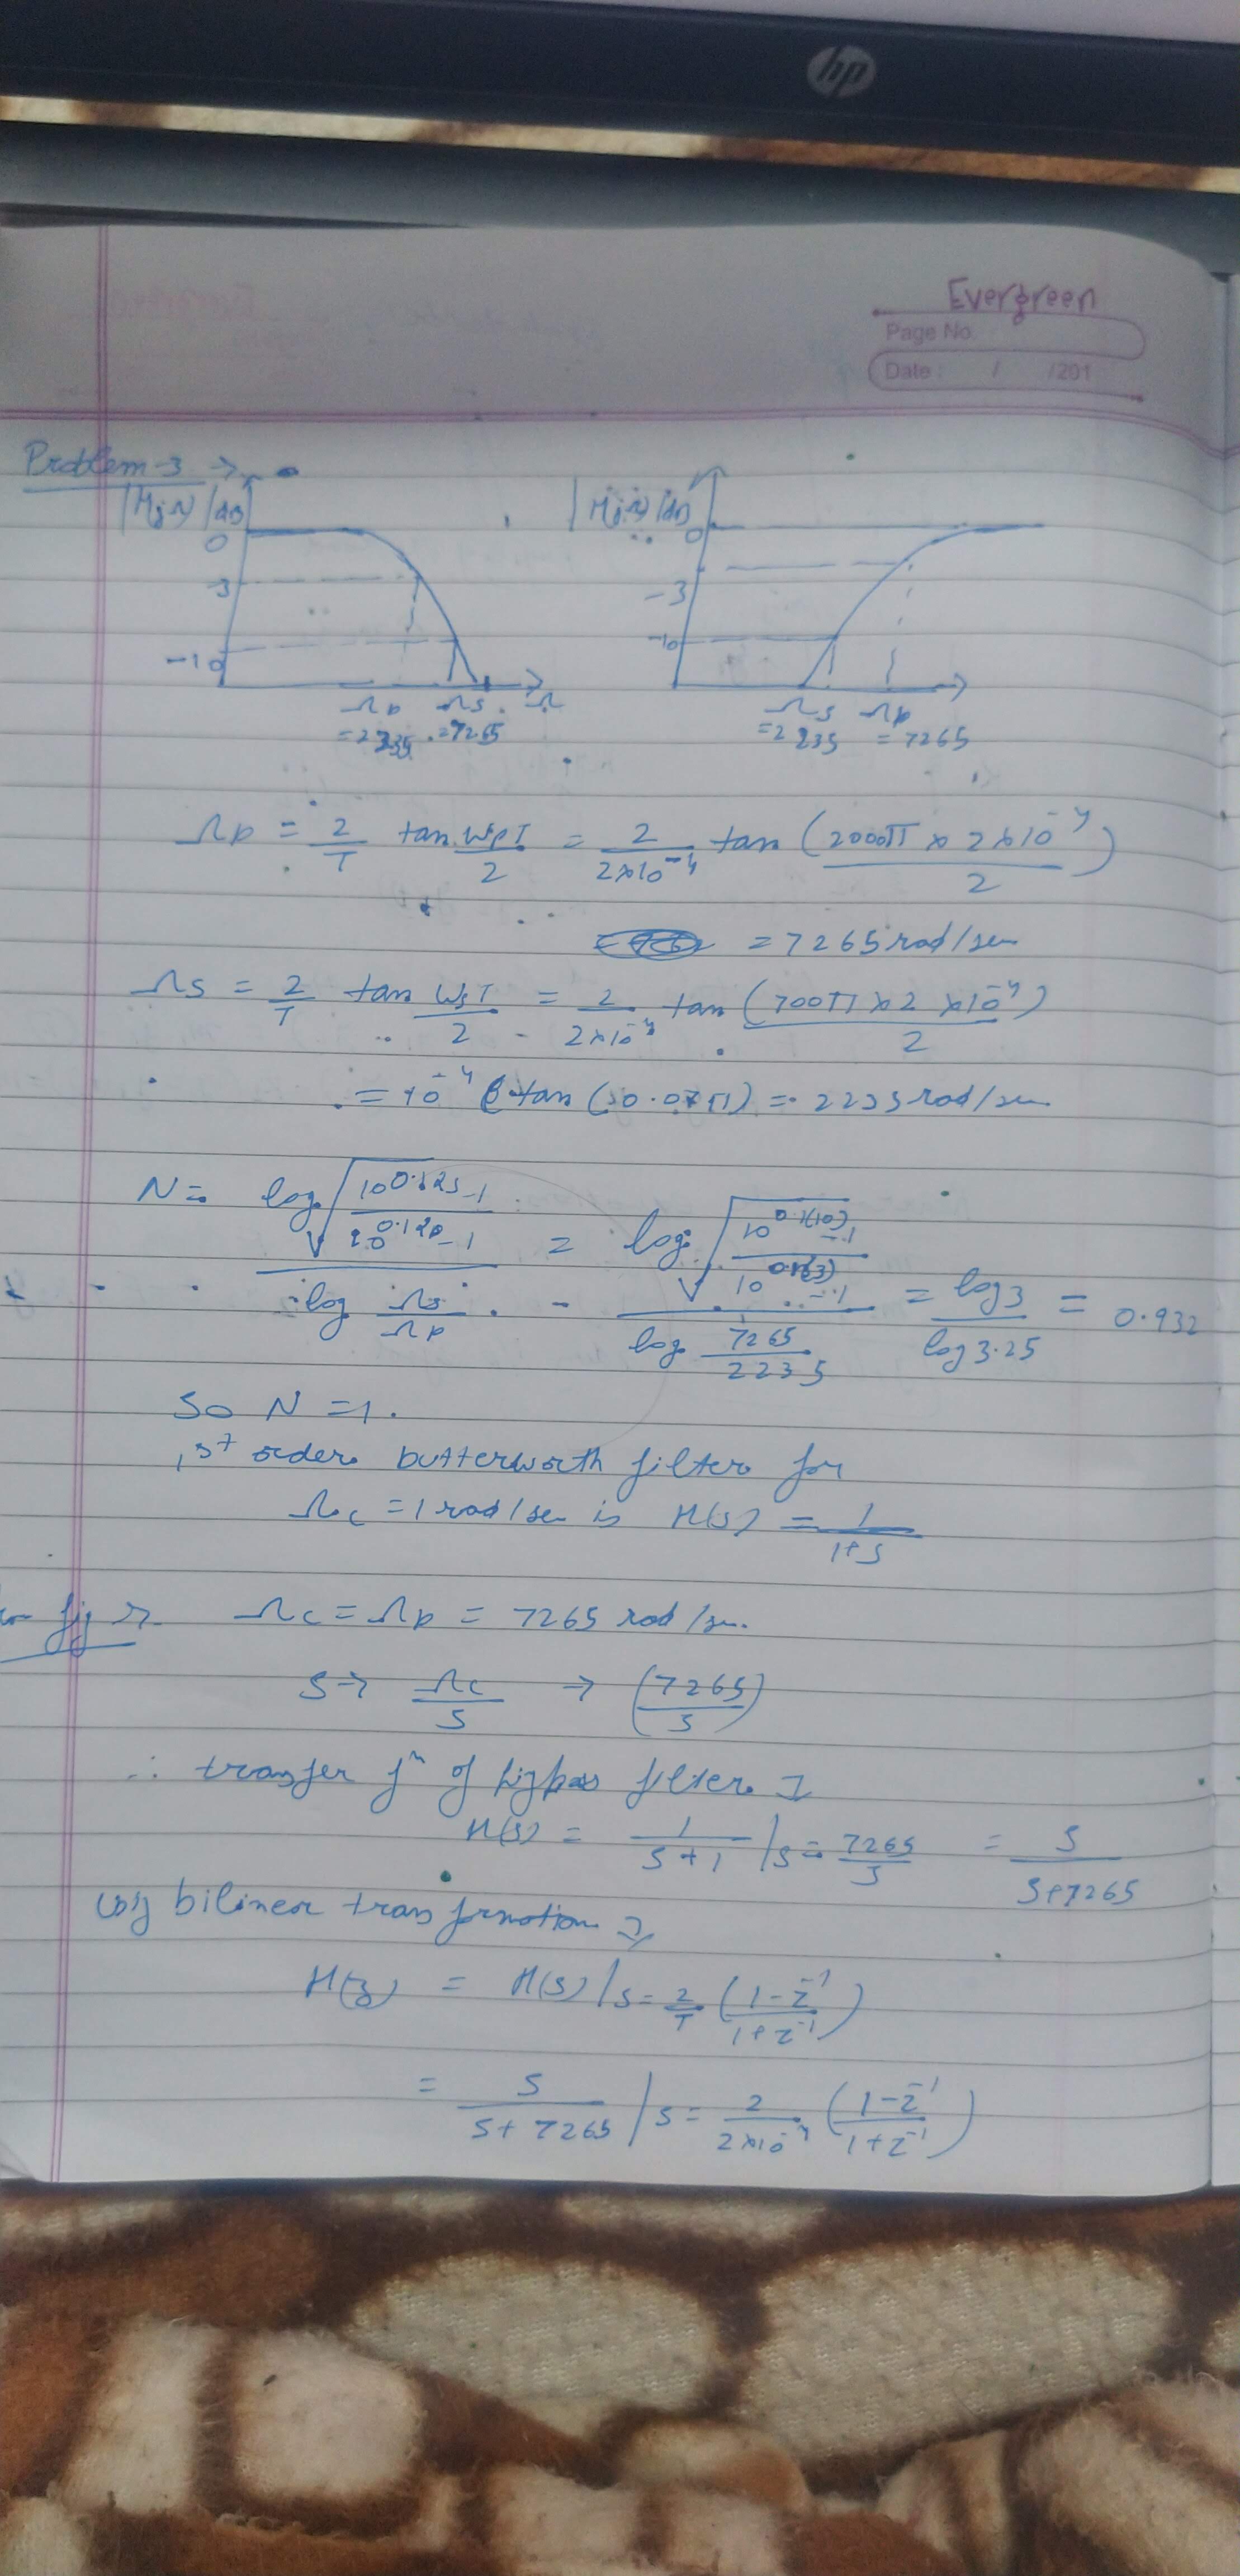 hp
Evergreen
Page No
Date / /201
Problem-3 →
|H(jΩ)|dB |H(jΩ)|dB
0 0
-3 -3
-10 -10
Ωp Ωs Ω Ωs Ωp
=2235 =7265 =2235 =7265
Ωp = 2/T tan WpT/2 = 2/(2×10^-4) tan (2000π × 2×10^-4)/2
= 7265 rad/sec
Ωs = 2/T tan WsT/2 = 2/(2×10^-4) tan (700π × 2 × 10^-4)/2
= 10^-4 tan (0.07π) = 2235 rad/sec
N = log √((10^0.1αs -1)/(10^0.1αp -1)) / log Ωs/Ωp = log √((10^0.1(10) -1)/(10^0.1(3) -1)) / log 7265/2235 = log 3/log 3.25 = 0.932
So N = 1.
1st order butterworth filter for
Ωc = 1 rad/sec is H(s) = 1/(1+s)
fig Ωc = Ωp = 7265 rad/sec.
S → Ωc/S → (7265/S)
∴ transfer fn of highpass filter
H(s) = 1/(S+1) |s = 7265/S = S/(S+7265)
Using bilinear transformation
H(z) = H(s)|s = 2/T ((1-z^-1)/(1+z^-1))
= S/(S+7265) |s = 2/(2×10^-4) ((1-z^-1)/(1+z^-1))